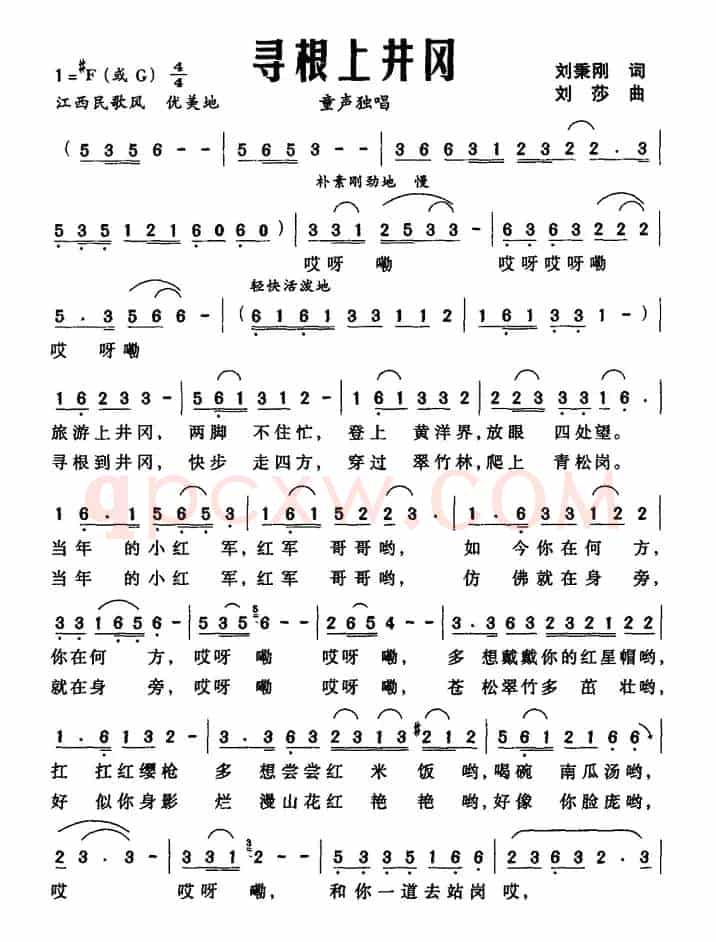 寻根上井冈
1=♯F（或 G） 4/4
刘秉刚 词
江西民歌风 优美地 童声独唱
刘 莎 曲
( 5 3 5 6 - - | 5 6 5 3 - - | 3 6 6 3 1 2 3 2 2 . 3
朴素刚劲地 慢
5 3 5 1 2 1 6 0 6 0 ) | 3 3 1 2 5 3 3 - | 6 3 6 3 2 2 2
哎呀 嘞 哎呀哎呀嘞
轻快活泼地
5 . 3 5 6 6 - | ( 6 1 6 1 3 3 1 1 2 | 1 6 1 3 3 1 - )
哎 呀嘞
1 6 2 3 3 - | 5 6 1 3 1 2 - | 1 6 1 3 3 2 | 2 2 3 3 3 1 6 .
旅游上井冈， 两脚 不住忙， 登上 黄洋界，放眼 四处望。
寻根到井冈， 快步 走四方， 穿过 翠竹林，爬上 青松岗。
qpcxw.com
1 6 . 1 5 6 5 3 | 1 6 1 5 2 2 - | 1 6 . 3 3 1 2 2
当年 的小红 军，红军 哥哥哟， 如 今你在何 方，
当年 的小红 军，红军 哥哥哟， 仿 佛就在身 旁，
3 3 1 6 5 6 - | 5 3 5 6 - | 2 6 5 4 - - | 3 . 3 6 3 2 3 1 2 2
你在何 方，哎呀 嘞 哎呀嘞， 多 想戴戴你的红星帽哟，
就在身 旁，哎呀 嘞 哎呀嘞， 苍 松翠竹多 茁 壮哟，
1 . 6 1 3 2 - | 3 . 3 6 3 2 3 1 3 ♯2 1 2 | 5 6 1 2 1 6 6
扛 扛红缨枪 多 想尝尝红 米 饭 哟，喝碗 南瓜汤哟，
好 似你身影 烂 漫山花红 艳艳 哟，好像 你脸庞哟，
2 3 . 3 - | 3 3 1 2 - - | 5 3 3 5 1 6 6 | 2 3 6 3 2 .
哎 哎呀 嘞， 和你一道去站岗 哎，